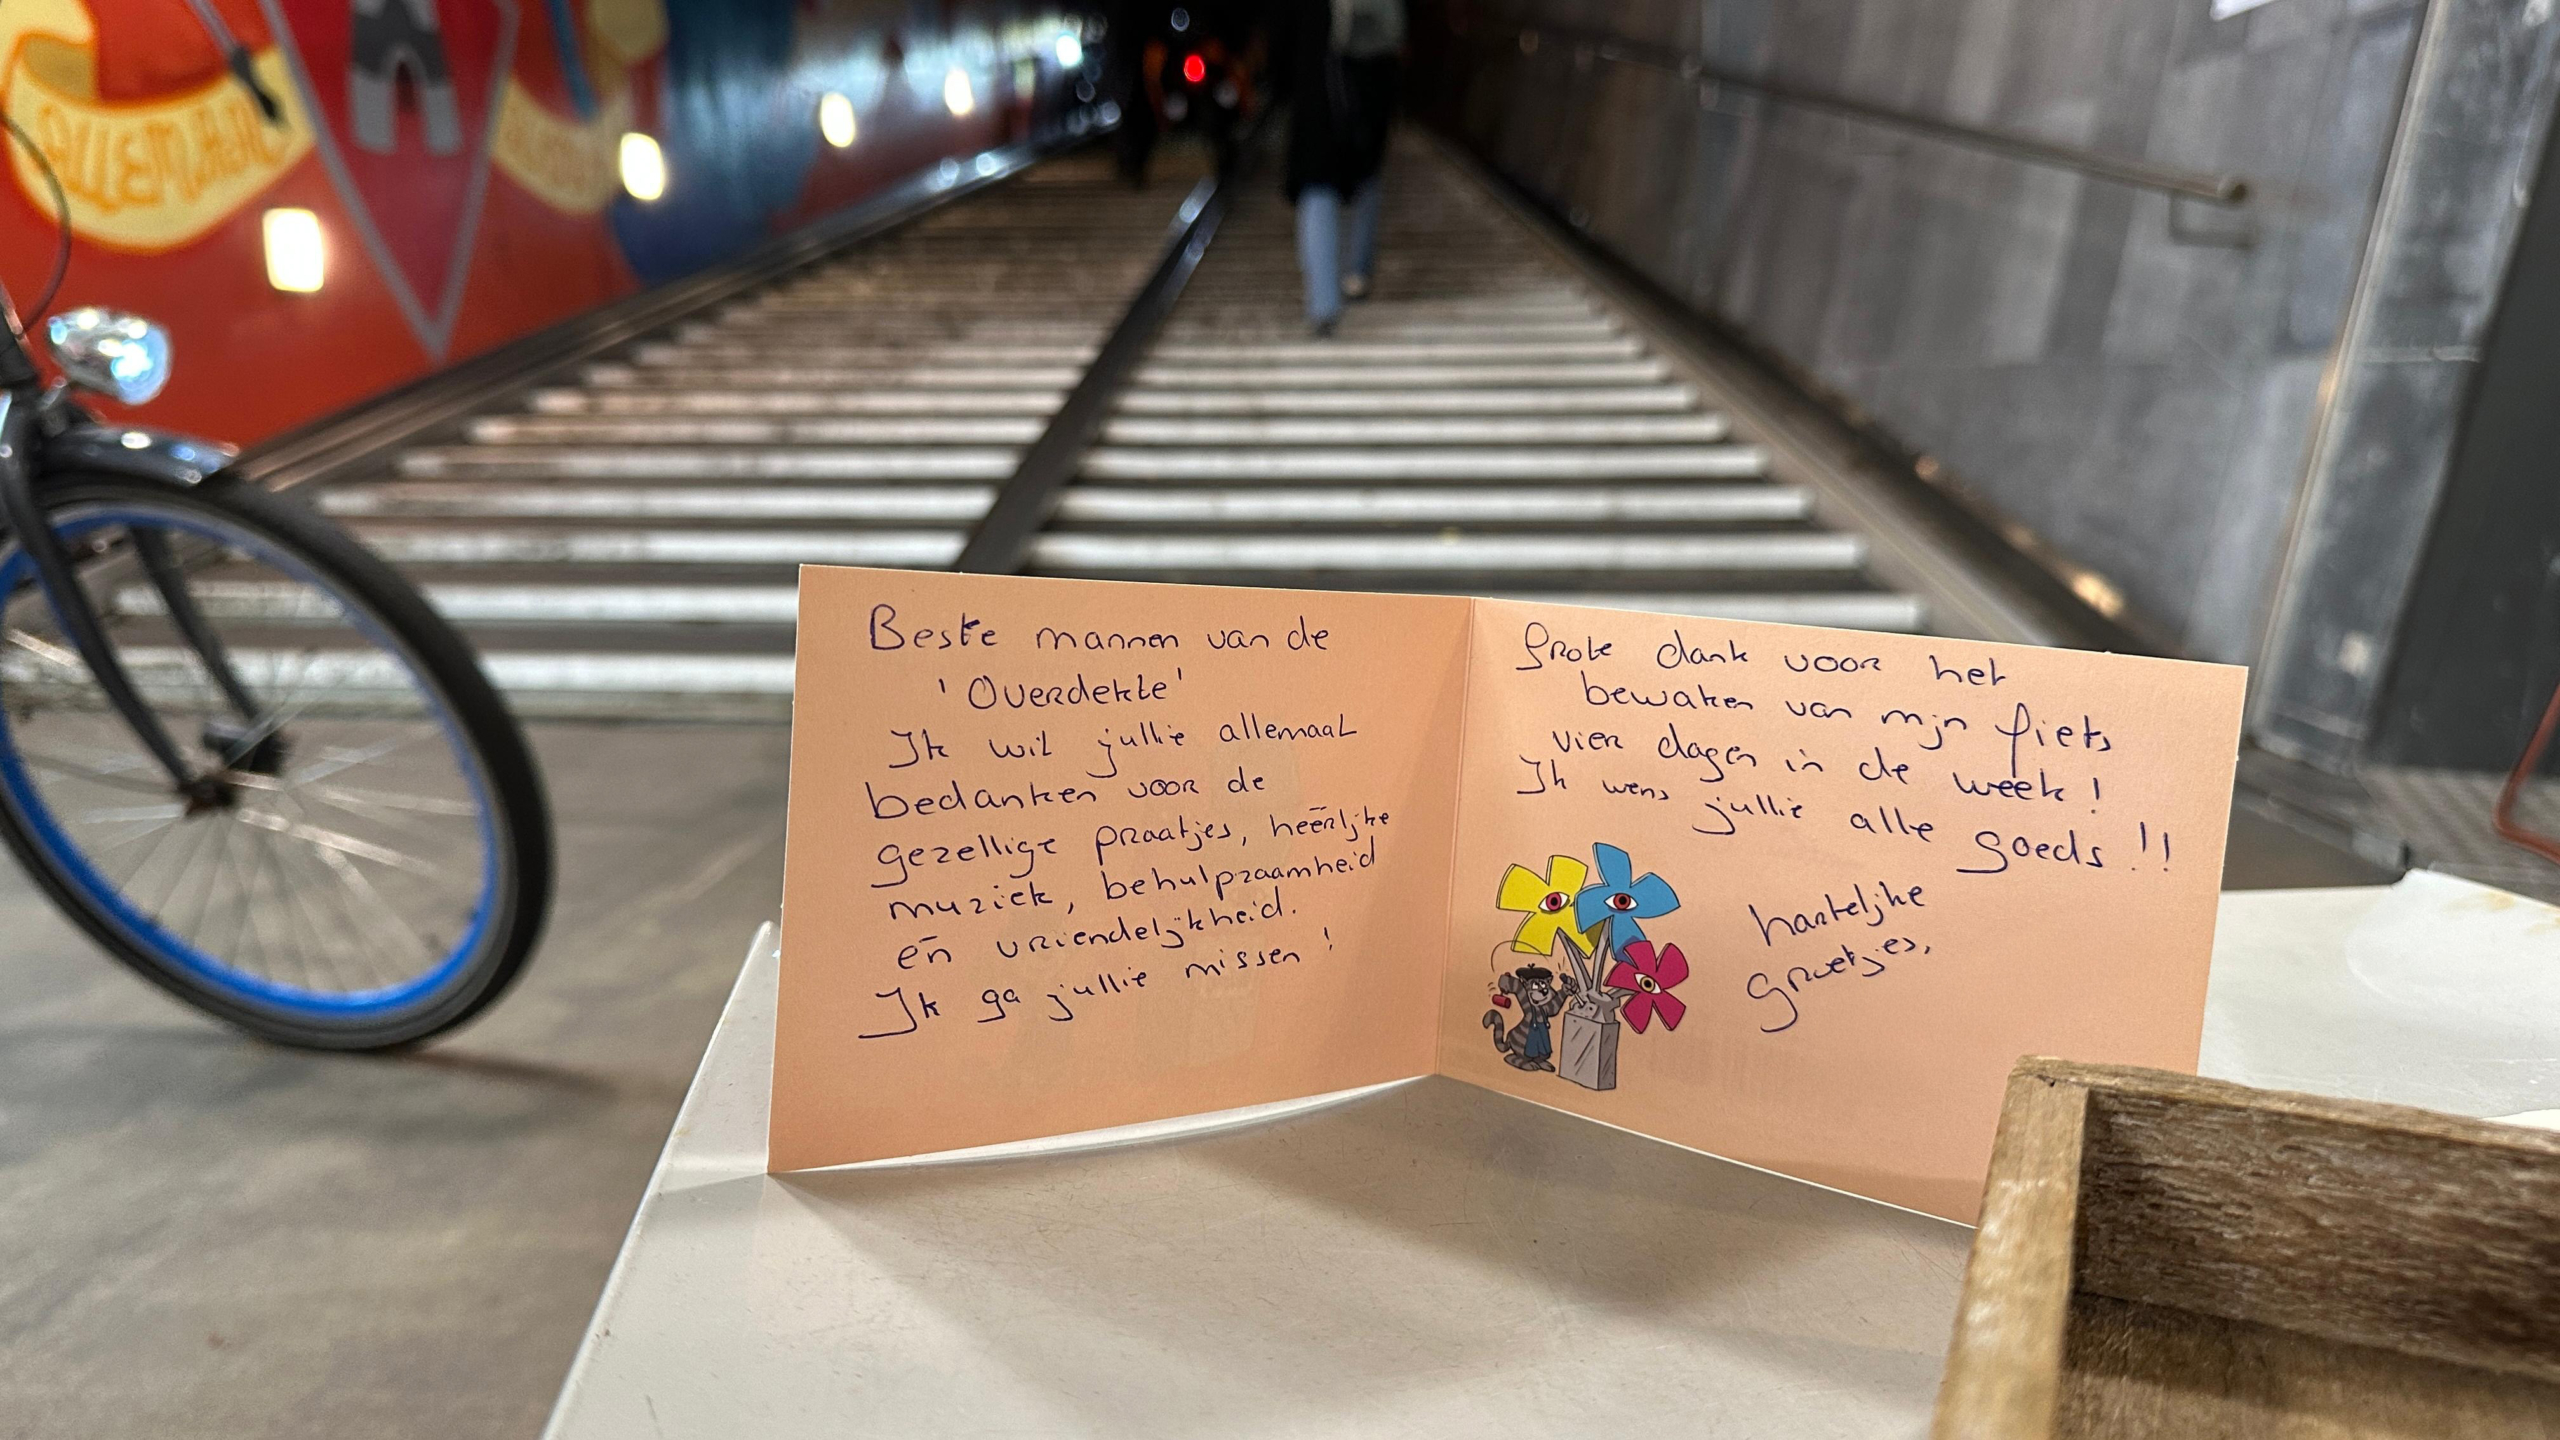 Beste mannen van de
'Overdekte'
Ik wil jullie allemaal
bedanken voor de
gezellige praatjes, heerlijke
muziek, behulpzaamheid
én vriendelijkheid.
Ik ga jullie missen!
Grote dank voor het
bewaken van mijn fiets
vier dagen in de week!
Ik wens jullie alle goeds!!
hartelijke
groetjes,